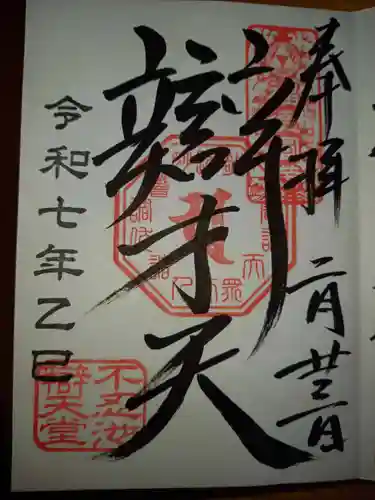 奉拝
二月廿三日
辨才天
令和七年乙巳
不忍池
辯天堂